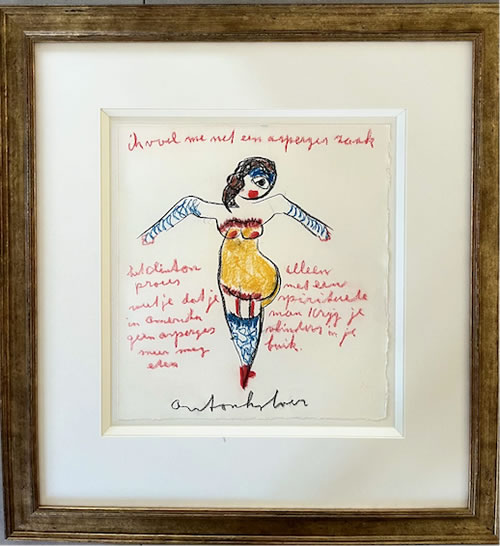 ik voel me net een asperges zaak
het clinton
proces
weet je dat je
in amerika
geen asperges
meer mag
eten
alleen
met een
spirituele
man krijg je
vlinders in je
buik.